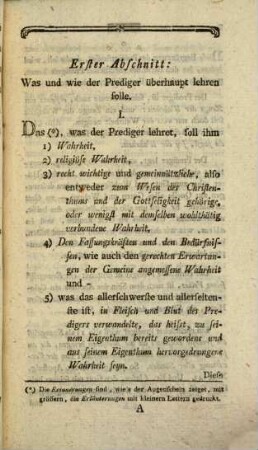 Erster Abschnitt:
Was und wie der Prediger überhaupt lehren
solle.
I.
Das (*), was der Prediger lehret, soll ihm
1) Wahrheit,
2) religiöse Wahrheit,
3) recht wichtige und gemeinnützliche, also
entweder zum Wesen des Christen-
thums und der Gottseligkeit gehörige,
oder wenigst mit demselben wohlthätig
verbundene Wahrheit,
4) Den Fassungskräften und den Bedürfnis-
sen, wie auch den gerechten Erwartun-
gen der Gemeine angemessene Wahrheit
und –
5) was das allerschwerste und allerselten-
ste ist, in Fleisch und Blut des Pre-
digers verwandelte, das heisst, zu sei-
nem Eigenthum bereits gewordene und
aus seinem Eigenthum hervorgedrungene
Wahrheit seyn.
Diese
(*) Die sind, wie's der Augenschein zeiget, mit
größern, die Erläuterungen mit kleinern Lettern gedruckt.
A